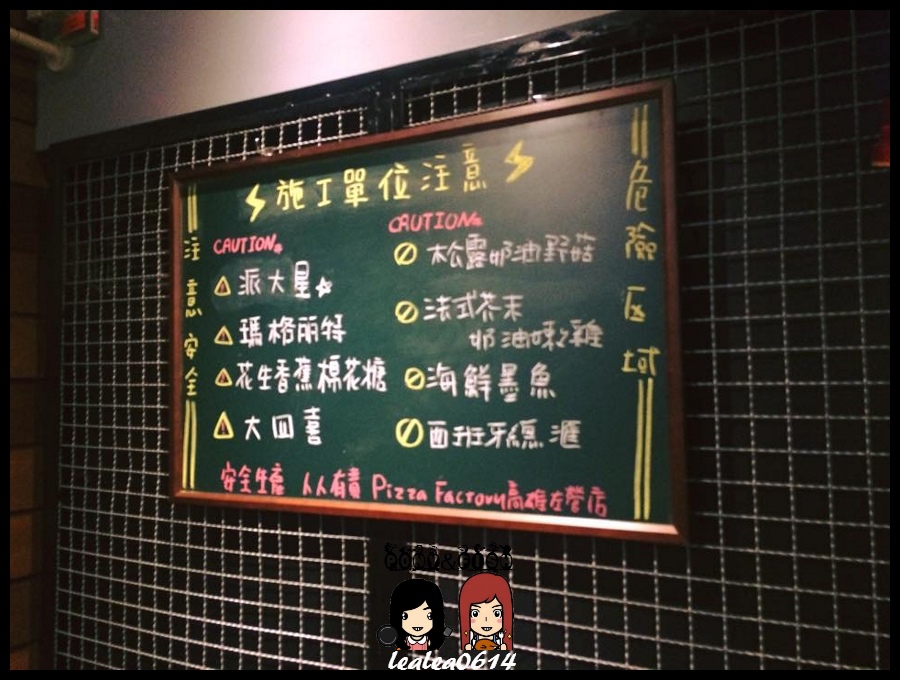 施工單位注意
注意安全
CAUTION
派大星
瑪格麗特
花生香蕉棉花糖
大四喜
CAUTION
松露奶油野菇
法式芥末
奶油嫩雞
海鮮墨魚
西班牙
危險區域
安全生產 人人有責 Pizza Factory高雄左營店
lealea0614